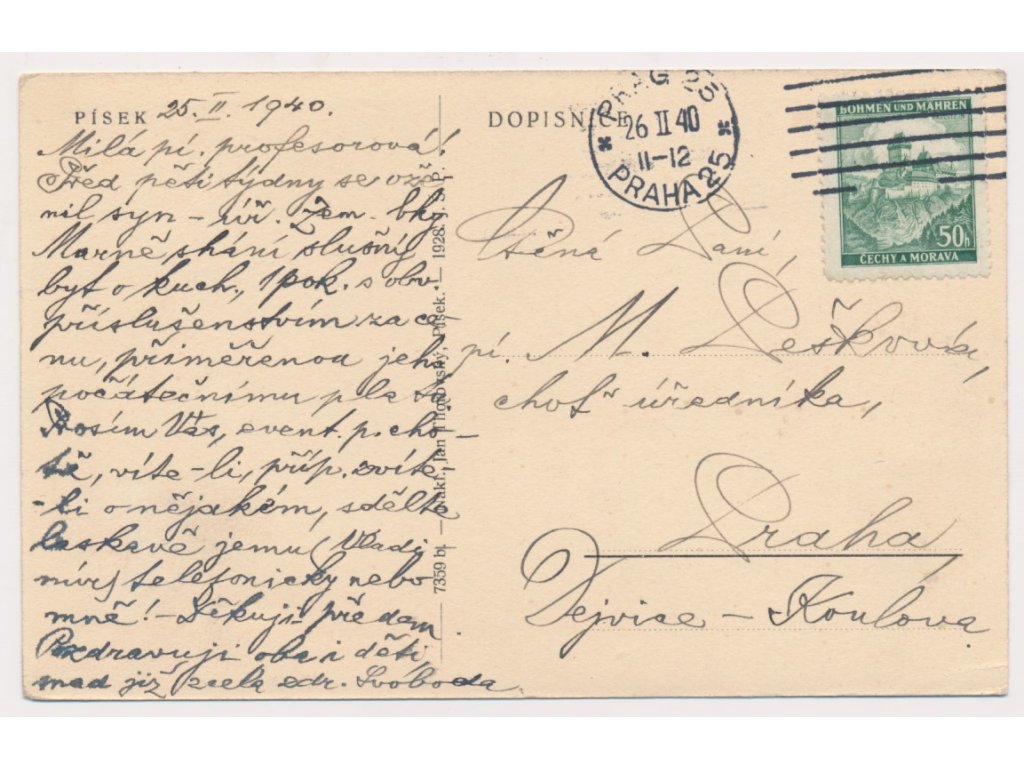 PÍSEK 25. II. 1940.
Milá pí. profesorová!
Před pěti týdny se ože-
nil syn - úř. Zem. bky
Marně shání slušný
byt o kuch., 1 pok. s obv.
příslušenstvím za ce-
nu, přiměřenou jeho
počátečnímu platu
Prosím Vás, event. p. cho-
tě, víte-li, příp. zvíte-
-li o nějakém, sdělte
laskavě jemu (Vladi-
mír) telefonicky nebo
mně! - Děkuji předem
Pozdravuji oba i děti,
snad již zcela zdr. Svoboda
7359 bt. — Nakl. Jan Thořovský, Písek. — 1928. P.
DOPISNICE
PRAG 25
26 II 40
11-12
PRAHA 25
BÖHMEN UND MÄHREN
50h
ČECHY A MORAVA
Ctěná Paní,
pí. M. Pešková,
choť úředníka,
Praha
Dejvice - Koulova